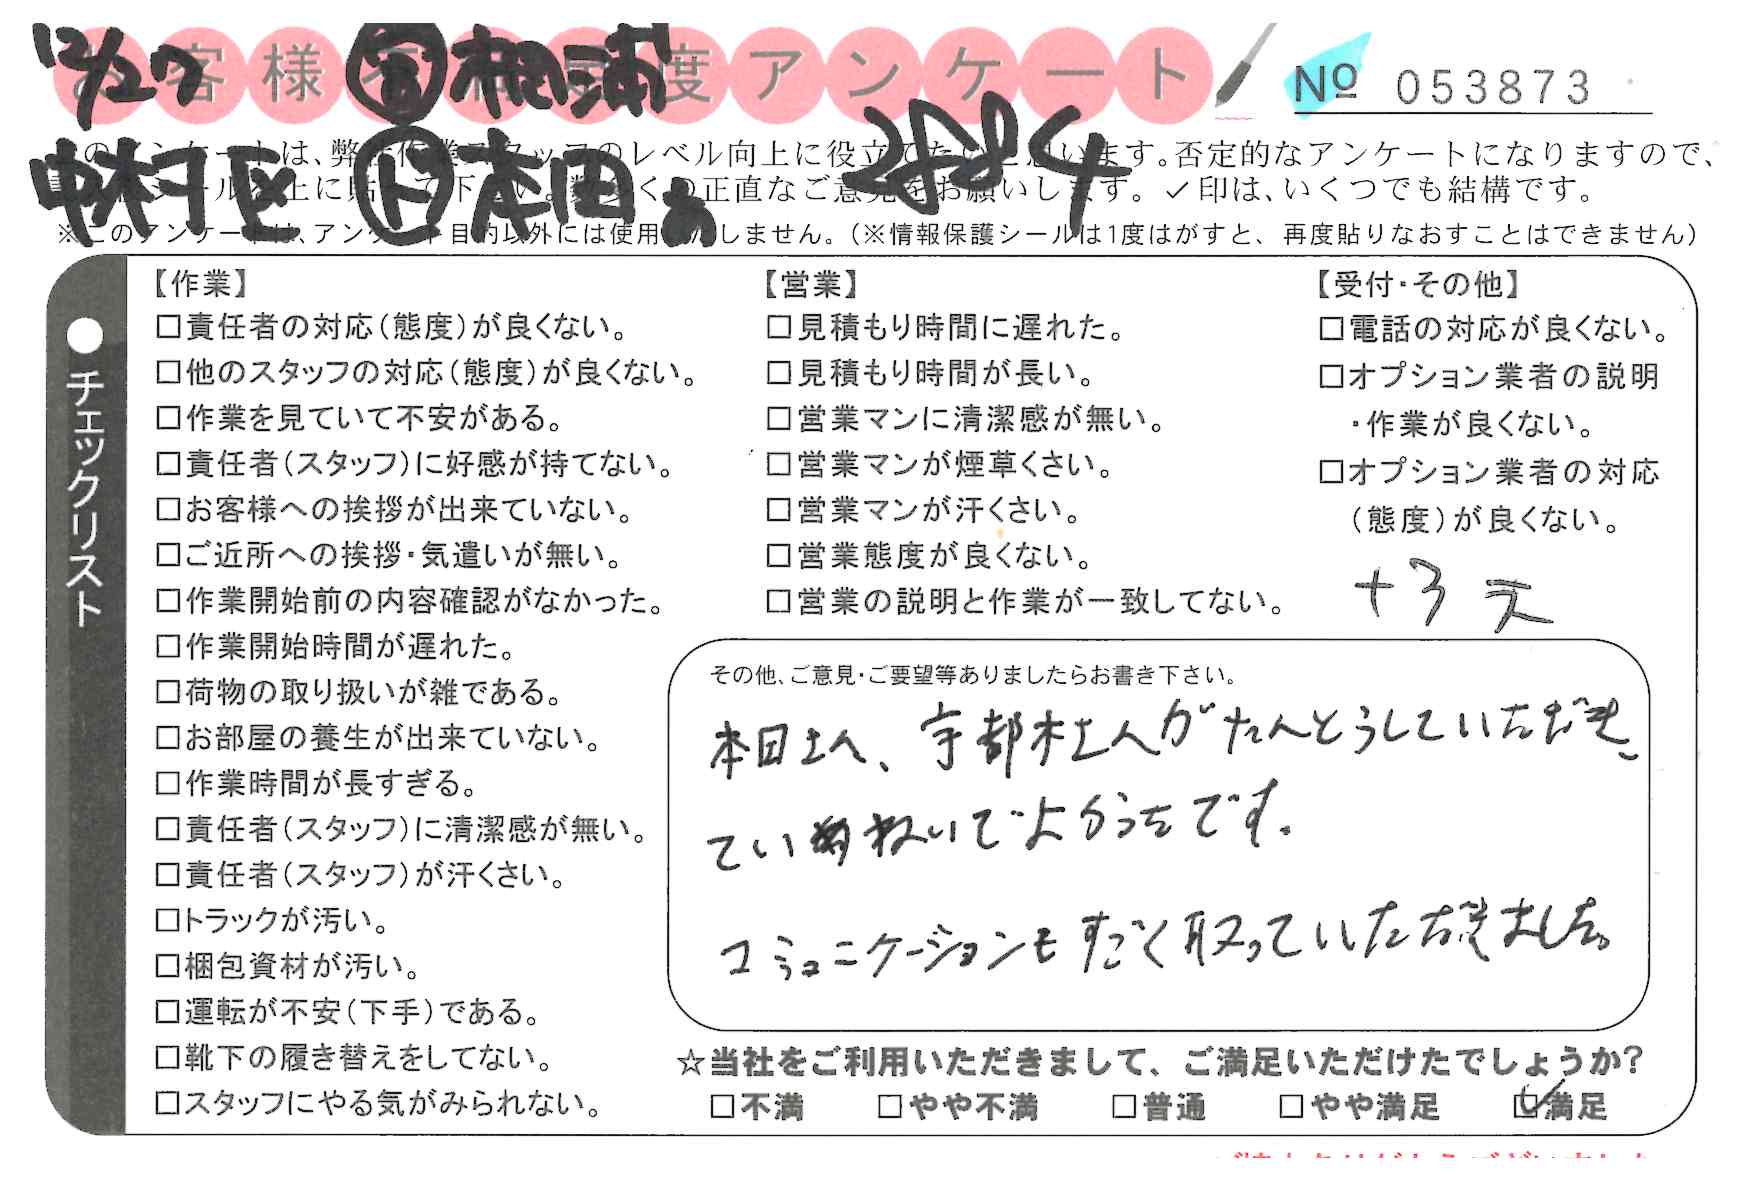 12/27 営 相浦
お客様不満足度アンケート
No 053873
中村区 ト 本田 2884
このアンケートは、弊社作業スタッフのレベル向上に役立てたいと思います。否定的なアンケートになりますので、
シールを上に貼って下さい。数多くの正直なご意見をお願いします。✓印は、いくつでも結構です。
※このアンケートは、アンケート目的以外には使用いたしません。(※情報保護シールは1度はがすと、再度貼りなおすことはできません)
●チェックリスト
【作業】
□責任者の対応(態度)が良くない。
□他のスタッフの対応(態度)が良くない。
□作業を見ていて不安がある。
□責任者(スタッフ)に好感が持てない。
□お客様への挨拶が出来ていない。
□ご近所への挨拶・気遣いが無い。
□作業開始前の内容確認がなかった。
□作業開始時間が遅れた。
□荷物の取り扱いが雑である。
□お部屋の養生が出来ていない。
□作業時間が長すぎる。
□責任者(スタッフ)に清潔感が無い。
□責任者(スタッフ)が汗くさい。
□トラックが汚い。
□梱包資材が汚い。
□運転が不安(下手)である。
□靴下の履き替えをしてない。
□スタッフにやる気がみられない。
【営業】
□見積もり時間に遅れた。
□見積もり時間が長い。
□営業マンに清潔感が無い。
□営業マンが煙草くさい。
□営業マンが汗くさい。
□営業態度が良くない。
□営業の説明と作業が一致してない。
【受付・その他】
□電話の対応が良くない。
□オプション業者の説明
・作業が良くない。
□オプション業者の対応
(態度)が良くない。
+3
その他、ご意見・ご要望等ありましたらお書き下さい。
本田さん、宇都木さんがたんとうしていただき、
ていねいでよかったです。
コミュニケーションもすごく取っていただきました。
☆当社をご利用いただきまして、ご満足いただけたでしょうか?
□不満 □やや不満 □普通 □やや満足 ☑満足